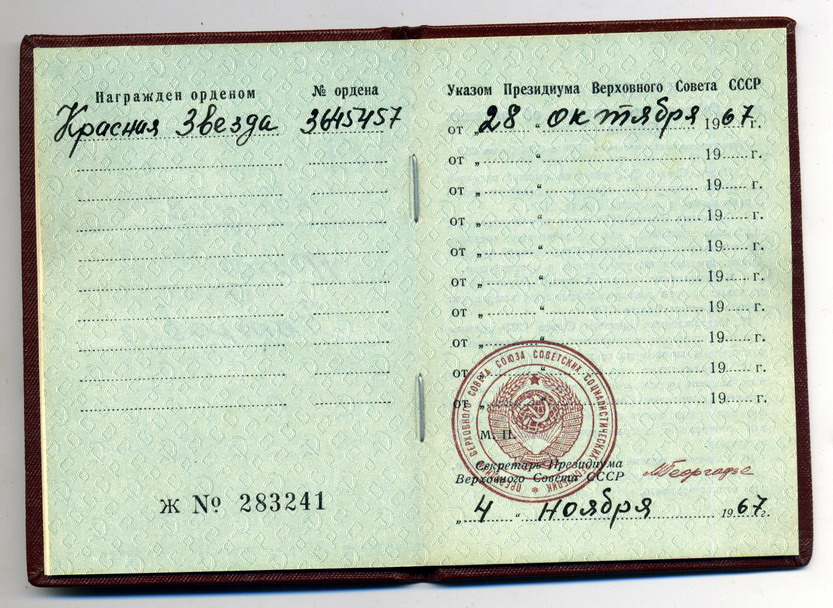 Награжден орденом
№ ордена
Красная Звезда
3645457
Ж № 283241
Указом Президиума Верховного Совета СССР
от „ 28 “ октября 1967 г.
от „ “ 19 г.
от „ “ 19 г.
от „ “ 19 г.
от „ “ 19 г.
от „ “ 19 г.
от „ “ 19 г.
от „ “ 19 г.
от „ “ 19 г.
от „ “ 19 г.
ВЕРХОВНОГО СОВЕТА СОЮЗА СОВЕТСКИХ СОЦИАЛИСТИЧЕСКИХ РЕСПУБЛИК ПРЕЗИДИУМ
М. П.
Секретарь Президиума
Верховного Совета СССР
МГеоргадзе
„ 4 “ ноября 1967 г.